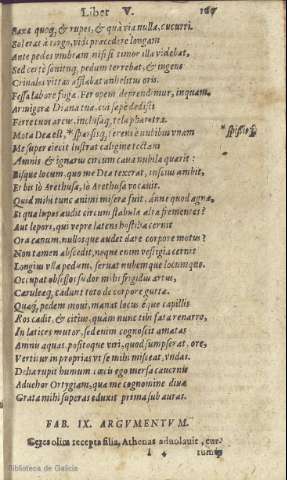 Liber V. 167
Saxa quoq;, & rupes, & quà via nulla, cucurri.
Sol erat à tergo, vidi præcedere longam
Ante pedes vmbram nisi si timor illa videbat,
Sed certè sonitusq; pedum terrebat, & ingens
Crinales vittas afflabat anhelitus oris.
Fessa labore fugæ, Fer opem deprendimur, inquam,
Armigeræ Diana tuæ, cui sæpe dedisti
Ferre tuos arcus, inclusaq; tela pharetra.
Mota Dea est, *sparsisq; ferens è nubibus vnam
Me super eiecit lustrat caligine tectam
Amnis, & ignarus circum caua nubila quærit:
Bisque locum, quo me Dea texerat, inscius ambit,
Et bis iò Arethusa, iò Arethusa vocauit.
Quid mihi tunc animi miseræ fuit? anne quod agnæ,
Si qua lupos audit circum stabula alta frementes?
Aut lepori, qui vepre latens hostilia cernit
Ora canum, nullosque audet dare corpore motus?
Non tamen abscedit, neque enim vestigia cernit
Longius vlla pedum, seruat nubemque locumque.
Occupat obsessos sudor mihi frigidus artus,
Cæruleæq; cadunt toto de corpore guttæ.
Quaq; pedem moui, manat locus è que capillis
Ros cadit, & citius, quàm nunc tibi fata renarro,
In latices mutor, sed enim cognoscit amatas
Amnis aquas, positoque viri, quod sumpserat, ore,
Vertitur in proprias vt se mihi misceat, vndas.
Delia rupit humum cæcis ego mersa cauernis
Aduehor Ortygiam, quæ me cognomine diuæ
Grata mihi superas eduxit prima sub auras.
FAB. IX. ARGVMENTVM.
Ceres olim recepta filia, Athenas aduolauit, cur-
l 4 rumq;
Biblioteca de Galicia